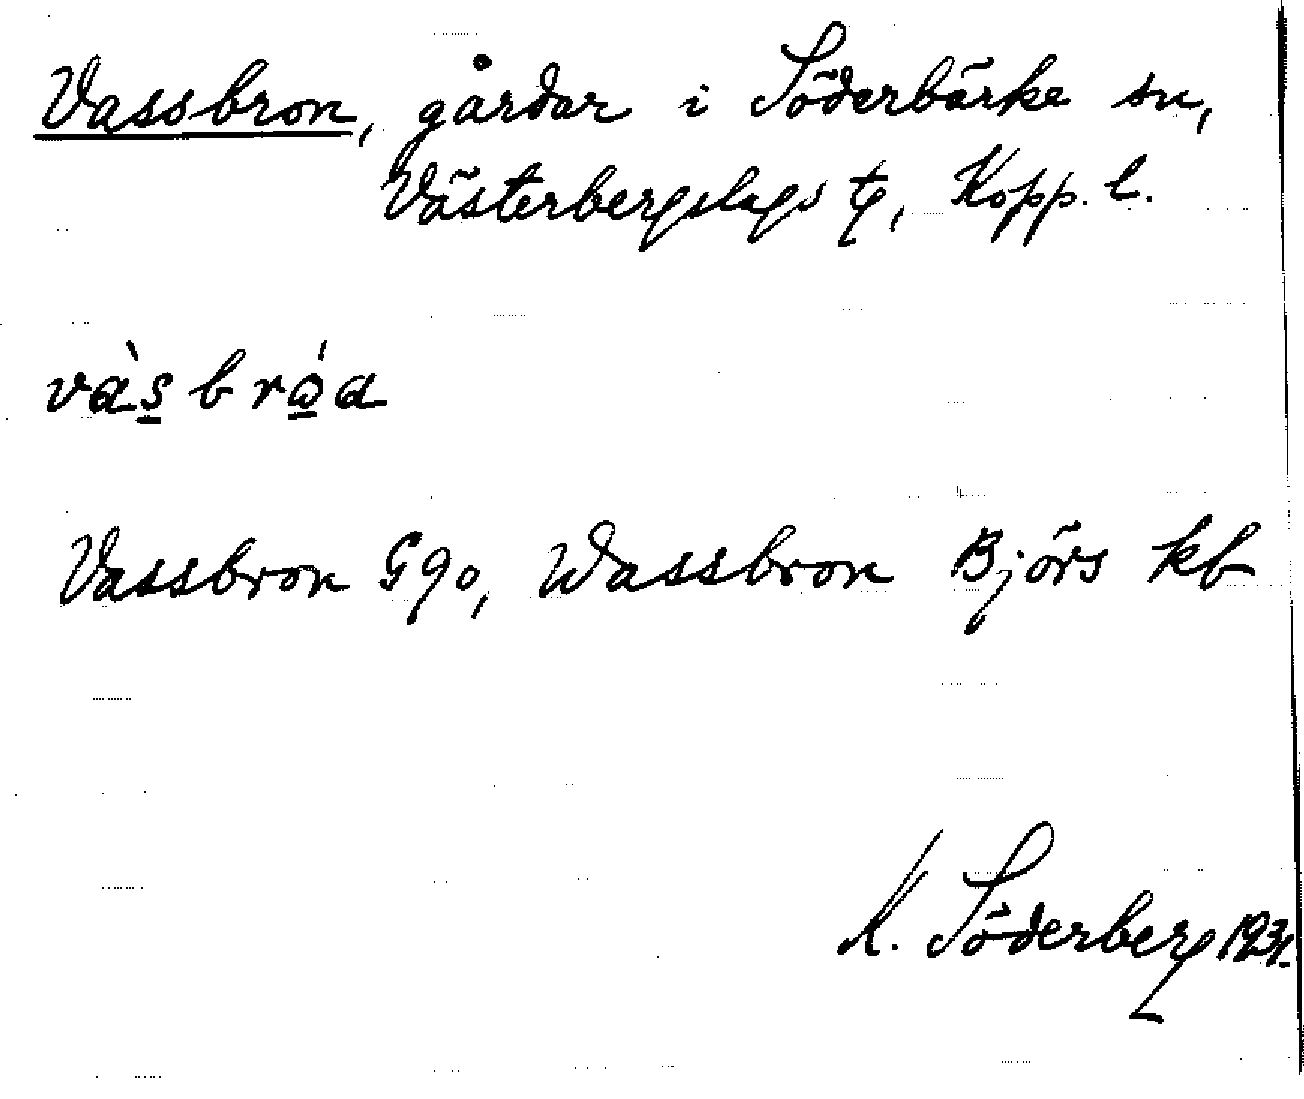 Vassbron, gårdar i Söderbärke sn,
Västerbergslags tg, Kopp. l.
vàs̲brώ̲a
Vassbron Ggo, Wassbron Björs kb
K. Söderberg 1931.